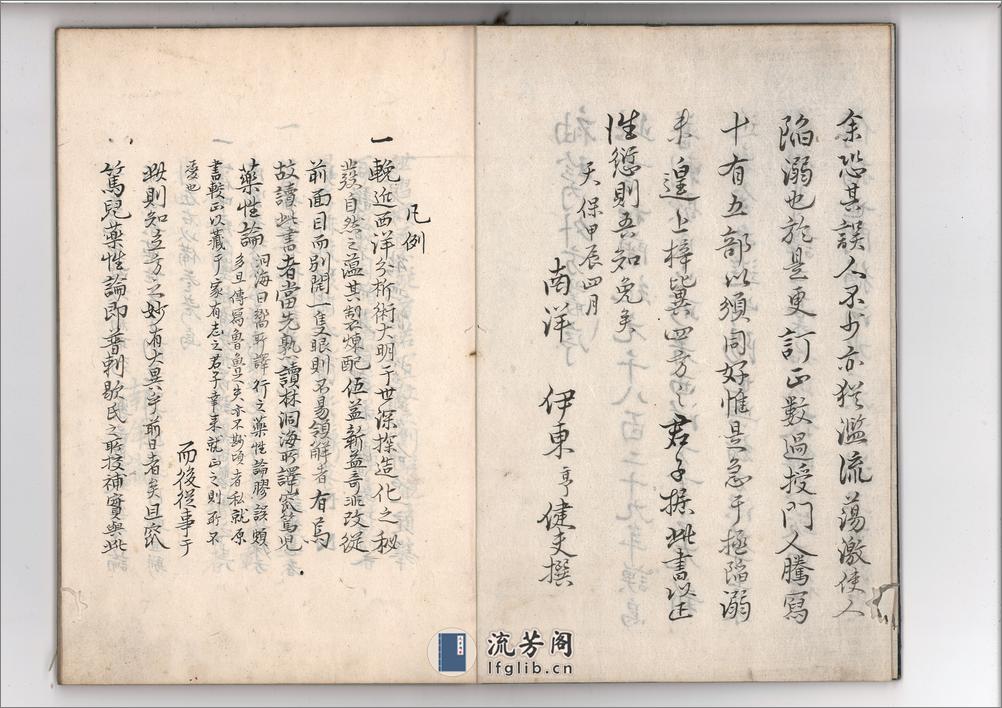 余恐其誤人不少亦猶濫流蕩激使人
陥溺也於是更訂正數過授門人騰寫
十有五部以頒同好惟是急于拯陥溺
未遑上梓比異四方之君子據此書以正
性愆則吾知免矣
天保甲辰四月
南洋 伊東 亨健夫撰
凡例
一輓近西洋分析術大明于世深探造化之秘
發自然之蘊其製煉配伍益新益奇派改從
前面目而別開一隻眼則不易領解者有焉
故讀此書者當先熟讀林洞海所譯窊篤児
藥性論
洞海曰嚮所譯行之藥性論膠誤頗
多且傳寫魯魚之失亦不尠頃者私就原
書較正以藏于家有志之君子幸来就正之則所不
愛也
而後從事于
此則知立方之妙有大異乎前日者矣且窊
篤兒藥性論即普朝歇氏之所校補實與此
流芳阁
lfglib.cn